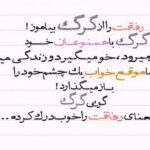 رفاقت را از گرگ بیاموز!
گرگ با همنوعان خود
میرود، خو میگیرد و زندگی می
اما موقع خواب یك چشم خود را
باز میگذارد!
گویی گرگ
معنای رفاقت را خوب درك كرده...